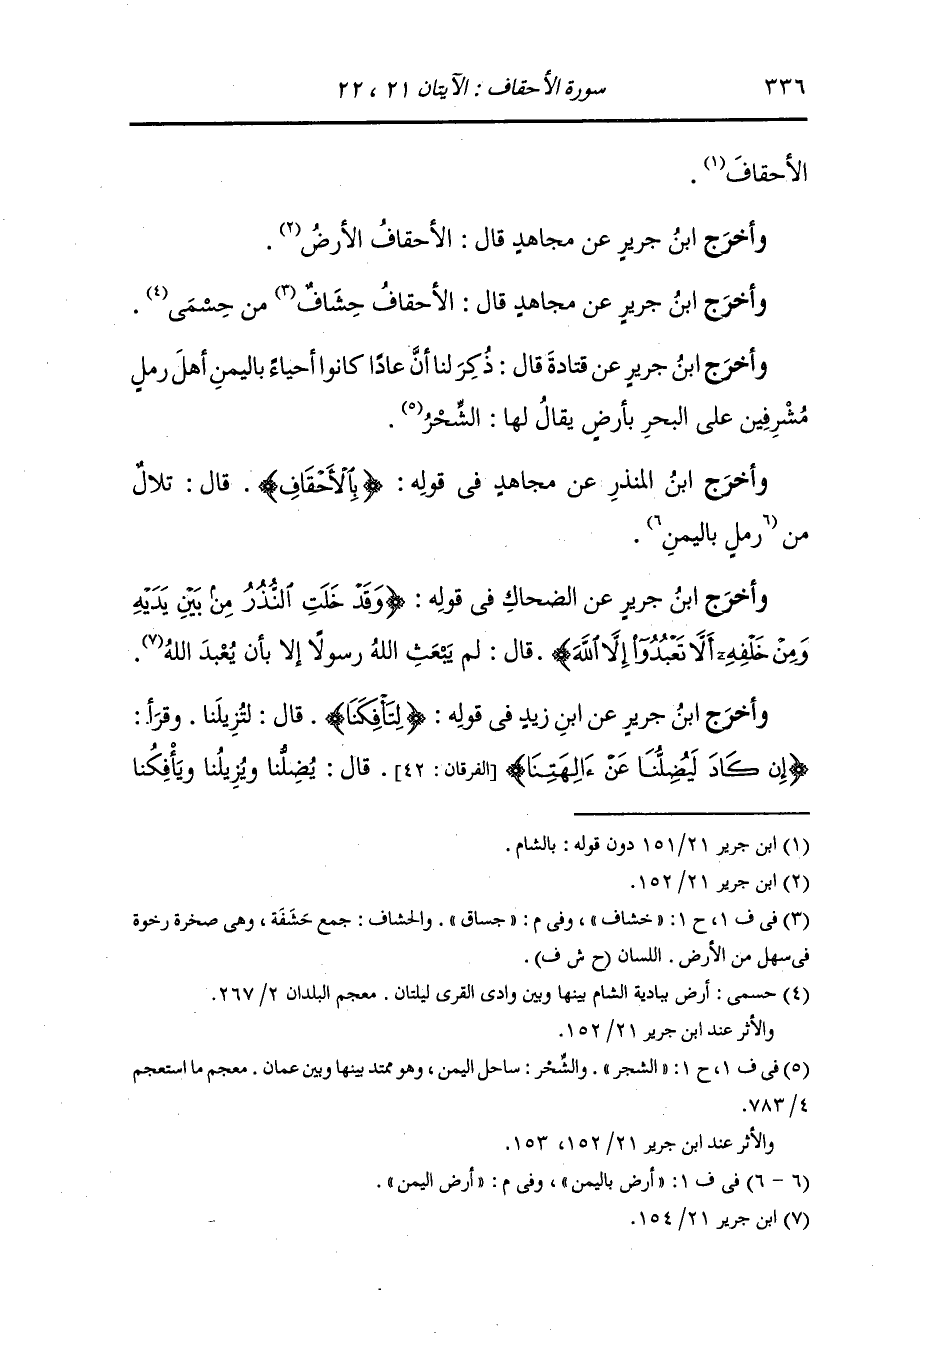 ٣٣٦ سورة الأحقاف : الآيتان ٢١ ، ٢٢
الأحقافَ(١) .
وأخرَج ابنُ جريرٍ عن مجاهدٍ قال : الأحقافُ الأرضُ(٢) .
وأخرَج ابنُ جريرٍ عن مجاهدٍ قال : الأحقافُ حِشَافٌ(٣) من حِسْمَى(٤) .
وأخرَج ابنُ جريرٍ عن قتادةَ قال : ذُكِرَ لنا أنَّ عادًا كانوا أحياءً باليمنِ أهلَ رملٍ
مُشْرِفِين على البحرِ بأرضٍ يقالُ لها : الشِّحْرُ(٥) .
وأخرَج ابنُ المنذرِ عن مجاهدٍ فى قولِه : ﴿بِٱلْأَحْقَافِ﴾ . قال : تلالٌ
من (٦رملٍ باليمنِ٦) .
وأخرَج ابنُ جريرٍ عن الضحاكِ فى قولِه : ﴿وَقَدْ خَلَتِ ٱلنُّذُرُ مِنۢ بَيْنِ يَدَيْهِ
وَمِنْ خَلْفِهِۦٓ أَلَّا تَعْبُدُوٓا۟ إِلَّا ٱللَّهَ﴾ . قال : لم يَبْعَثِ اللهُ رسولًا إلا بأن يُعْبدَ اللهُ(٧) .
وأخرَج ابنُ جريرٍ عن ابنِ زيدٍ فى قولِه : ﴿لِتَأْفِكَنَا﴾ . قال : لتُزِيلَنا . وقرَأ :
﴿إِن كَادَ لَيُضِلُّنَا عَنْ ءَالِهَتِنَا﴾ [الفرقان : ٤٢] . قال : يُضِلُّنا ويُزِيلُنا ويَأْفِكُنا
(١) ابن جرير ٢١/ ١٥١ دون قوله : بالشام .
(٢) ابن جرير ٢١/ ١٥٢.
(٣) فى ف ١، ح ١: «خشاف» ، وفى م : «جساق» . والحشاف : جمع حَشَفَة ، وهى صخرة رخوة
فى سهل من الأرض . اللسان (ح ش ف) .
(٤) حسمى : أرض ببادية الشام بينها وبين وادى القرى ليلتان . معجم البلدان ٢/ ٢٦٧.
والأثر عند ابن جرير ٢١/ ١٥٢.
(٥) فى ف ١، ح ١: «الشجر» . والشِّحْر : ساحل اليمن ، وهو ممتد بينها وبين عمان . معجم ما استعجم
٤/ ٧٨٣.
والأثر عند ابن جرير ٢١/ ١٥٢، ١٥٣.
(٦ - ٦) فى ف ١: «أرض باليمن» ، وفى م : «أرض اليمن» .
(٧) ابن جرير ٢١/ ١٥٤.